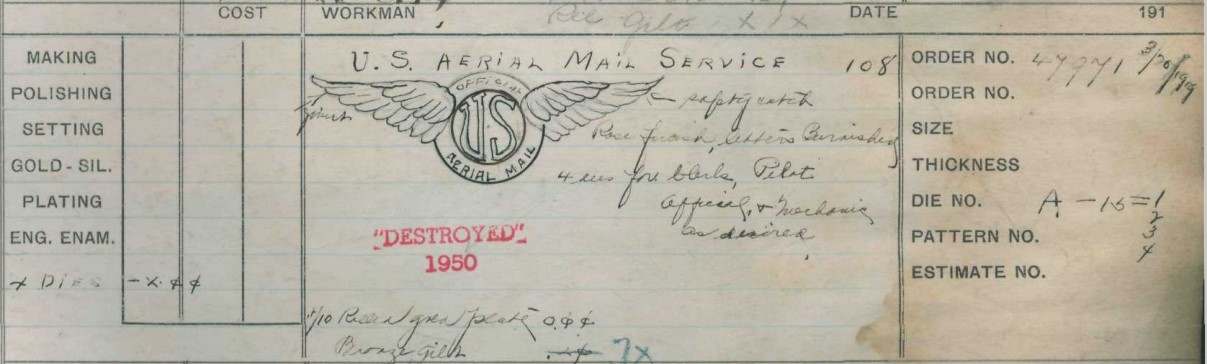 COST WORKMAN DATE 191
Gilt X 1X
MAKING
POLISHING
SETTING
GOLD - SIL.
PLATING
ENG. ENAM.
4 DIES - X.¢¢
U.S. AERIAL MAIL SERVICE 108
OFFICIAL
US
AERIAL MAIL
joint
← safety catch
Rose finish, letters Burnished
4 dies for Clerk, Pilot
Official, & Mechanic
as desired
"DESTROYED"
1950
1/10 Rolled plate
Bronze Gilt 7X
ORDER NO. 49971 3/20/1919
ORDER NO.
SIZE
THICKNESS
DIE NO. A - 15 = 1
2
PATTERN NO. 3
4
ESTIMATE NO.